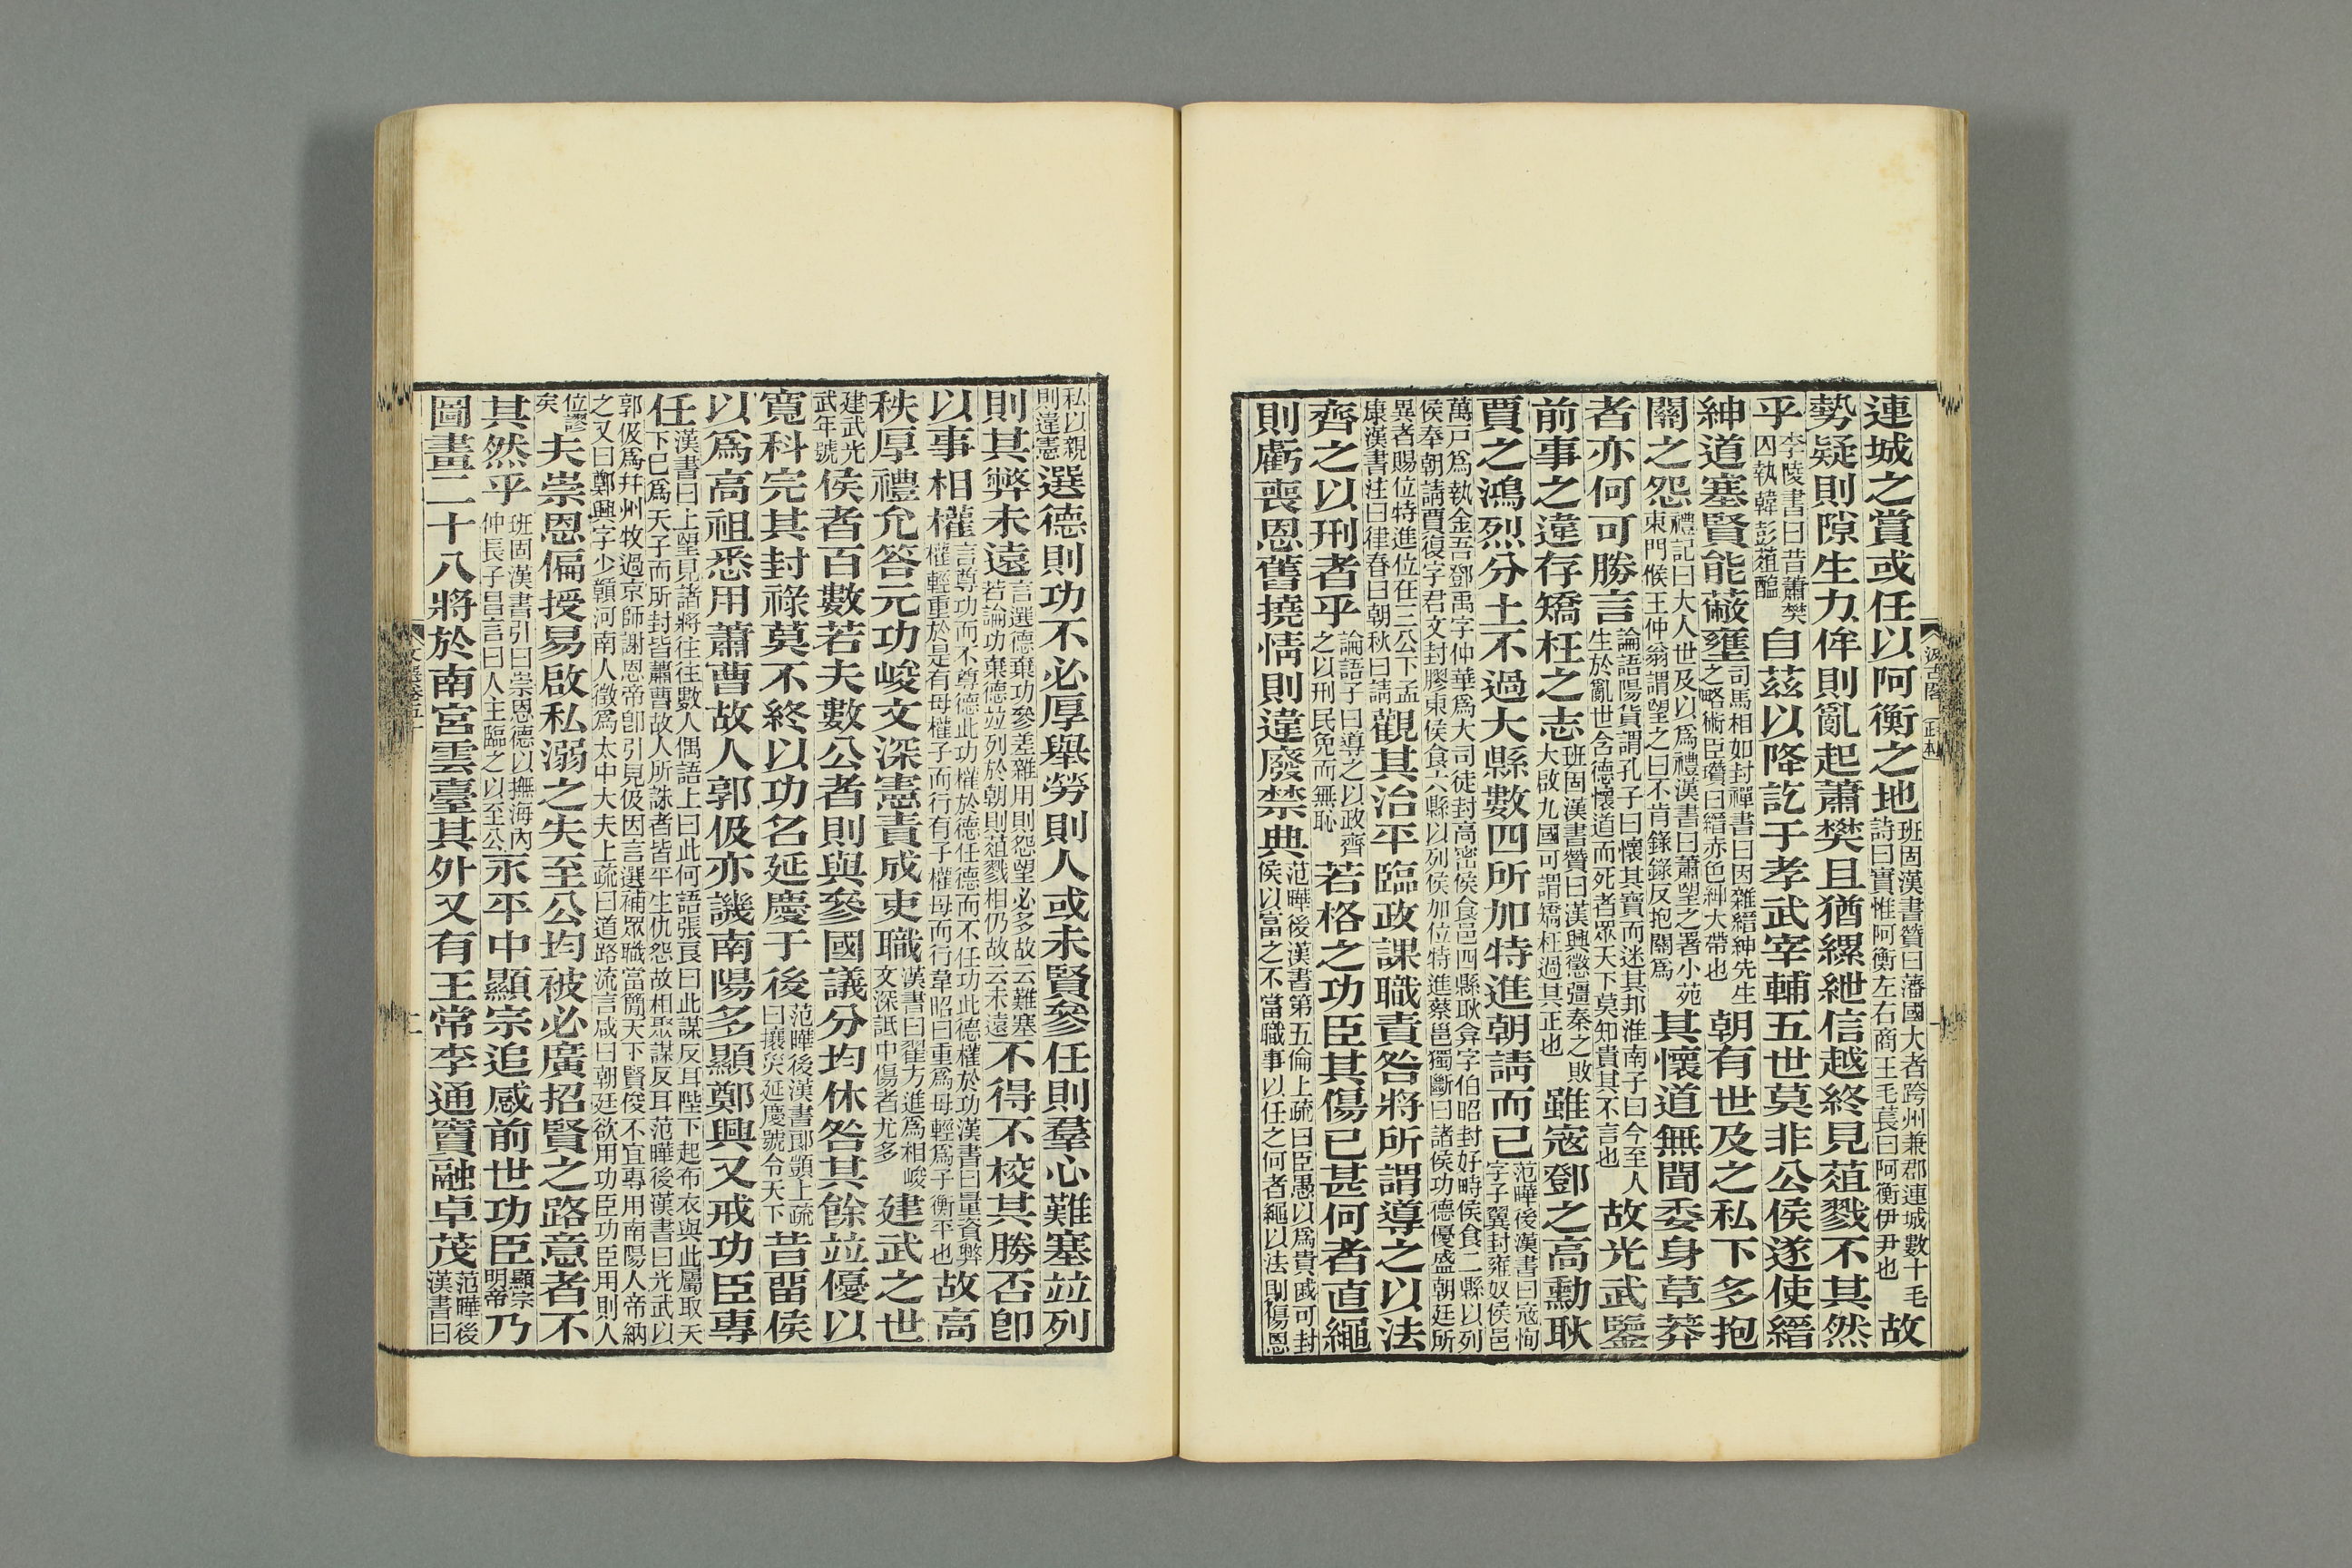 連城之賞或任以阿衡之地班固漢書贊曰藩國大者跨州兼郡連城數十毛詩曰實惟阿衡左右商王毛萇曰阿衡伊尹也故
勢疑則隙生力侔則亂起蕭樊且猶縲紲信越終見葅戮不其然
乎李陵書曰昔蕭樊囚執韓彭葅醢自茲以降訖于孝武宰輔五世莫非公侯遂使縉
紳道塞賢能蔽壅司馬相如封禪書曰因雜縉紳先生之略術臣瓚曰縉赤色紳大帶也朝有世及之私下多抱
關之怨禮記曰大人世及以爲禮漢書曰蕭望之署小苑東門候王仲翁謂望之曰不肯錄錄反抱關爲其懷道無聞委身草莽
者亦何可勝言論語陽貨謂孔子曰懷其寶而迷其邦淮南子曰今至人生於亂世含德懷道而死者眾天下莫知貴其不言也故光武鑒
前事之違存矯枉之志班固漢書贊曰漢興懲彊秦之敗大啟九國可謂矯枉過其正也雖寇鄧之高勳耿
賈之鴻烈分土不過大縣數四所加特進朝請而已范曄後漢書曰寇恂字子翼封雍奴侯邑
萬戶爲執金吾鄧禹字仲華爲大司徒封高密侯食邑四縣耿弇字伯昭封好畤侯食二縣以列侯奉朝請賈復字君文封膠東侯食六縣以列侯加位特進蔡邕獨斷曰諸侯功德優盛朝廷所
異者賜位特進位在三公下孟康漢書注曰律春曰朝秋曰請觀其治平臨政課職責咎將所謂導之以法
齊之以刑者乎論語子曰導之以政齊之以刑民免而無恥若格之功臣其傷已甚何者直繩
則虧喪恩舊撓情則違廢禁典范曄後漢書第五倫上疏曰臣愚以爲貴戚可封侯以富之不當職事以任之何者繩以法則傷恩
私以親則違憲選德則功不必厚舉勞則人或未賢參任則羣心難塞並列
則其弊未遠言選德棄功參差雜用則怨望必多故云難塞若論功棄德並列於朝則葅戮相仍故云未遠不得不校其勝否卽
以事相權言尊功而不尊德此功權於德任德而不任功此德權於功漢書曰量資弊權輕重於是有母權子而行有子權母而行韋昭曰重爲母輕爲子衡平也故高
秩厚禮允答元功峻文深憲責成吏職漢書曰翟方進爲相峻文深詆中傷者尤多建武之世
建武光武年號侯者百數若夫數公者則與參國議分均休咎其餘並優以
寬科完其封祿莫不終以功名延慶于後范曄後漢書郞顗上疏曰攘災延慶號令天下昔畱侯
以爲高祖悉用蕭曹故人郭伋亦譏南陽多顯鄭興又戒功臣專
任漢書曰上望見諸將往往數人偶語上曰此何語張良曰此謀反耳陛下起布衣與此屬取天下已爲天子而所封皆蕭曹故人所誅者皆平生仇怨故相聚謀反耳范曄後漢書曰光武以
郭伋爲幷州牧過京師謝恩帝卽引見伋因言選補眾職當簡天下賢俊不宜專用南陽人帝納之又曰鄭興字少贛河南人徵爲太中大夫上疏曰道路流言咸曰朝廷欲用功臣功臣用則人
位謬矣夫崇恩偏授易啟私溺之失至公均被必廣招賢之路意者不
其然乎班固漢書引曰崇恩德以撫海內仲長子昌言曰人主臨之以至公永平中顯宗追感前世功臣顯宗明帝乃
圖畫二十八將於南宮雲臺其外又有王常李通竇融卓茂范曄後漢書曰
汲古閣
正本
二